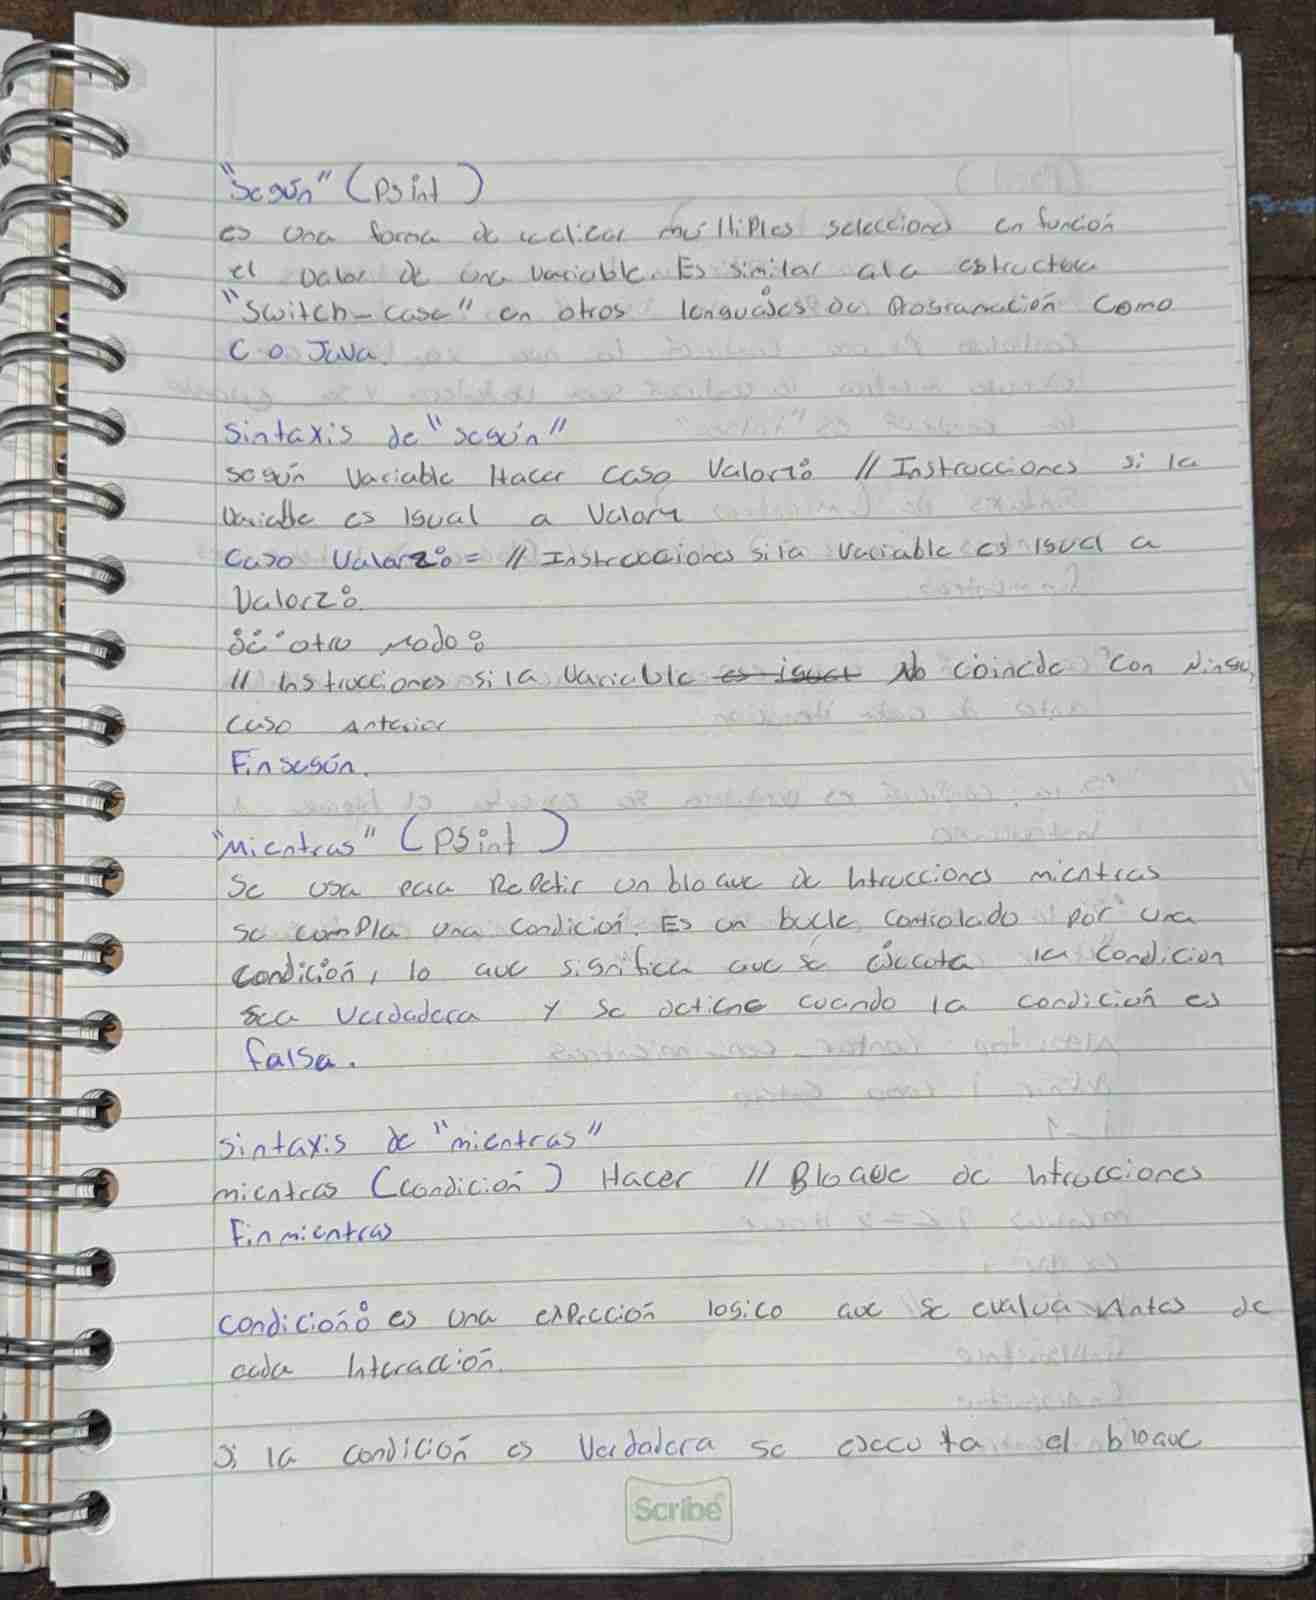 "Según" (PSint)
es una forma de realizar múltiples selecciones en función
el valor de una variable. Es similar ala estructura
"Switch-case" en otros lenguajes de Programación como
C o Java.
Sintaxis de "según"
según Variable Hacer caso Valor1: // Instrucciones si la
Variable es Igual a Valor1
Caso Valor2:= // Instrucciones si la Variable es igual a
Valor2:
De otro Modo:
// Instrucciones si la Variable es igual No coincide Con Ningu
caso Anterior
Finsegún.
"Mientras" (PSint)
Se usa para Repetir un bloque de Intrucciones mientras
se compla una condición. Es un bucle controlado por una
condición, lo que significa que se ejecuta la condicion
sea Verdadera y se detiene cuando la condición es
falsa.
Sintaxis de "mientras"
mientras (condición) Hacer // Bloque de Intrucciones
Finmientras
Condición: es una expección logico que se evalua Antes de
cada Interacción.
Si la condición es Verdadera se ejecuta el bloque
Scribe